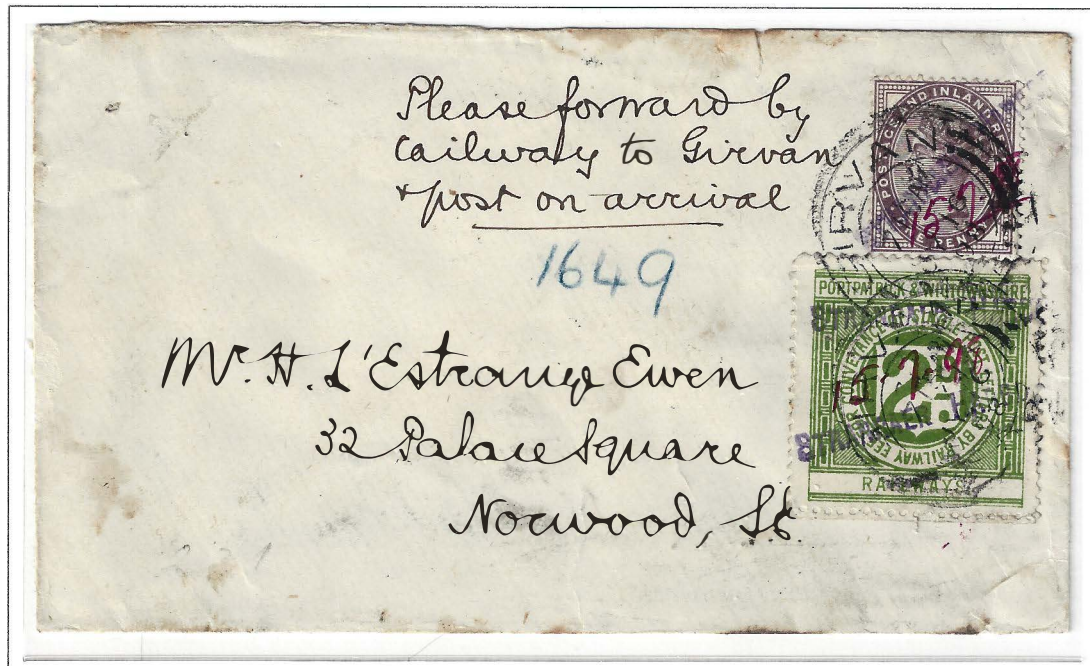 Please forward by
railway to Girvan
& post on arrival
1649
Mr. H. L'Estrange Ewen
32 Palace Square
Norwood, SE.
POSTAGE AND INLAND
15 7
PORTPATRICK & WIGTOWNSHIRE
2D
15.7.96
RAILWAYS